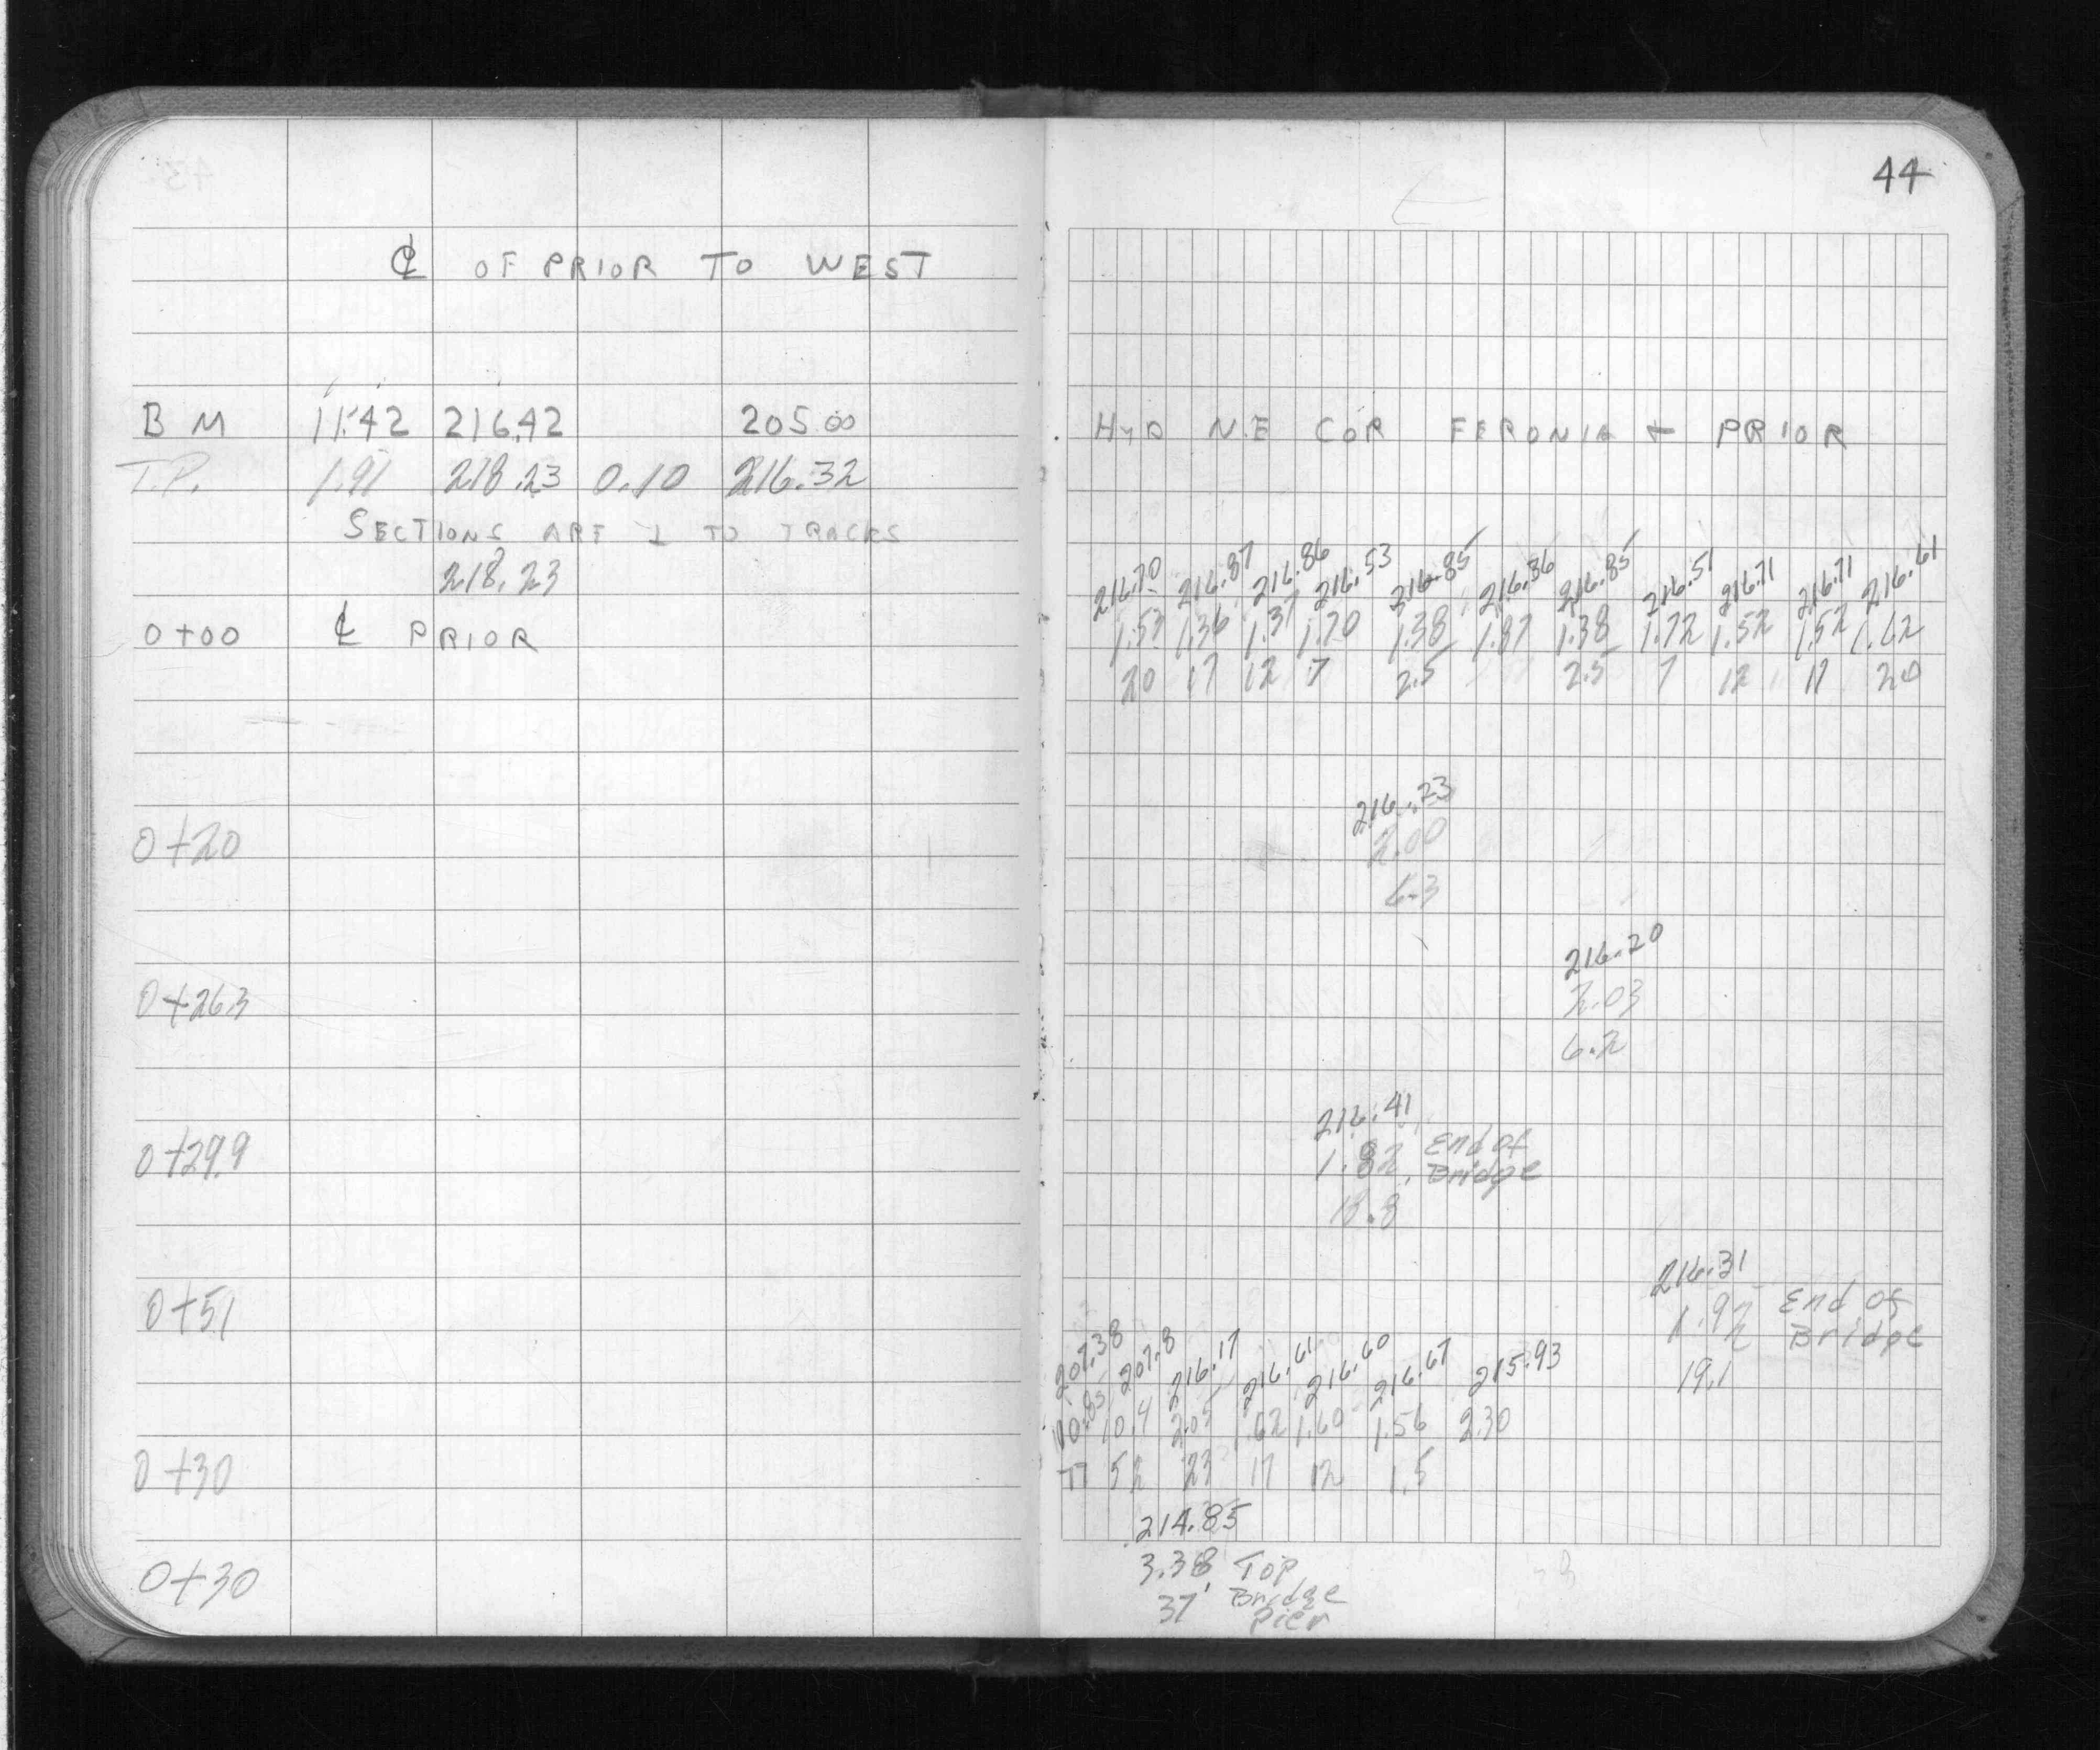 44
℄ OF PRIOR TO WEST
B M 11.42 216.42 205.00 HYD N.E COR FERONIA + PRIOR
T.P. 1.91 218.23 0.10 216.32
SECTIONS ARE ⊥ TO TRACKS
218.23
216.70 216.87 216.86 216.53 216.85 216.36 216.85 216.51 216.71 216.71 216.61
0+00 ℄ PRIOR 1.53 1.36 1.37 1.70 1.38 1.87 1.38 1.72 1.52 1.52 1.62
20 17 12 7 2.5 2.5 7 12 17 20
216.23
0+20 2.00
6.3
216.20
0+26.3 2.03
6.2
216.41
0+29.9 1.82 End of
Bridge
18.8
216.31
0+51 1.92 End of
Bridge
19.1
207.38 207.8 216.17 216.61 216.60 216.67 215.93
10.85 10.4 2.05 1.62 1.60 1.56 2.30
0+30 77 52 23 17 12 1.5
214.85
0+30 3.38 Top
37' Bridge
Pier